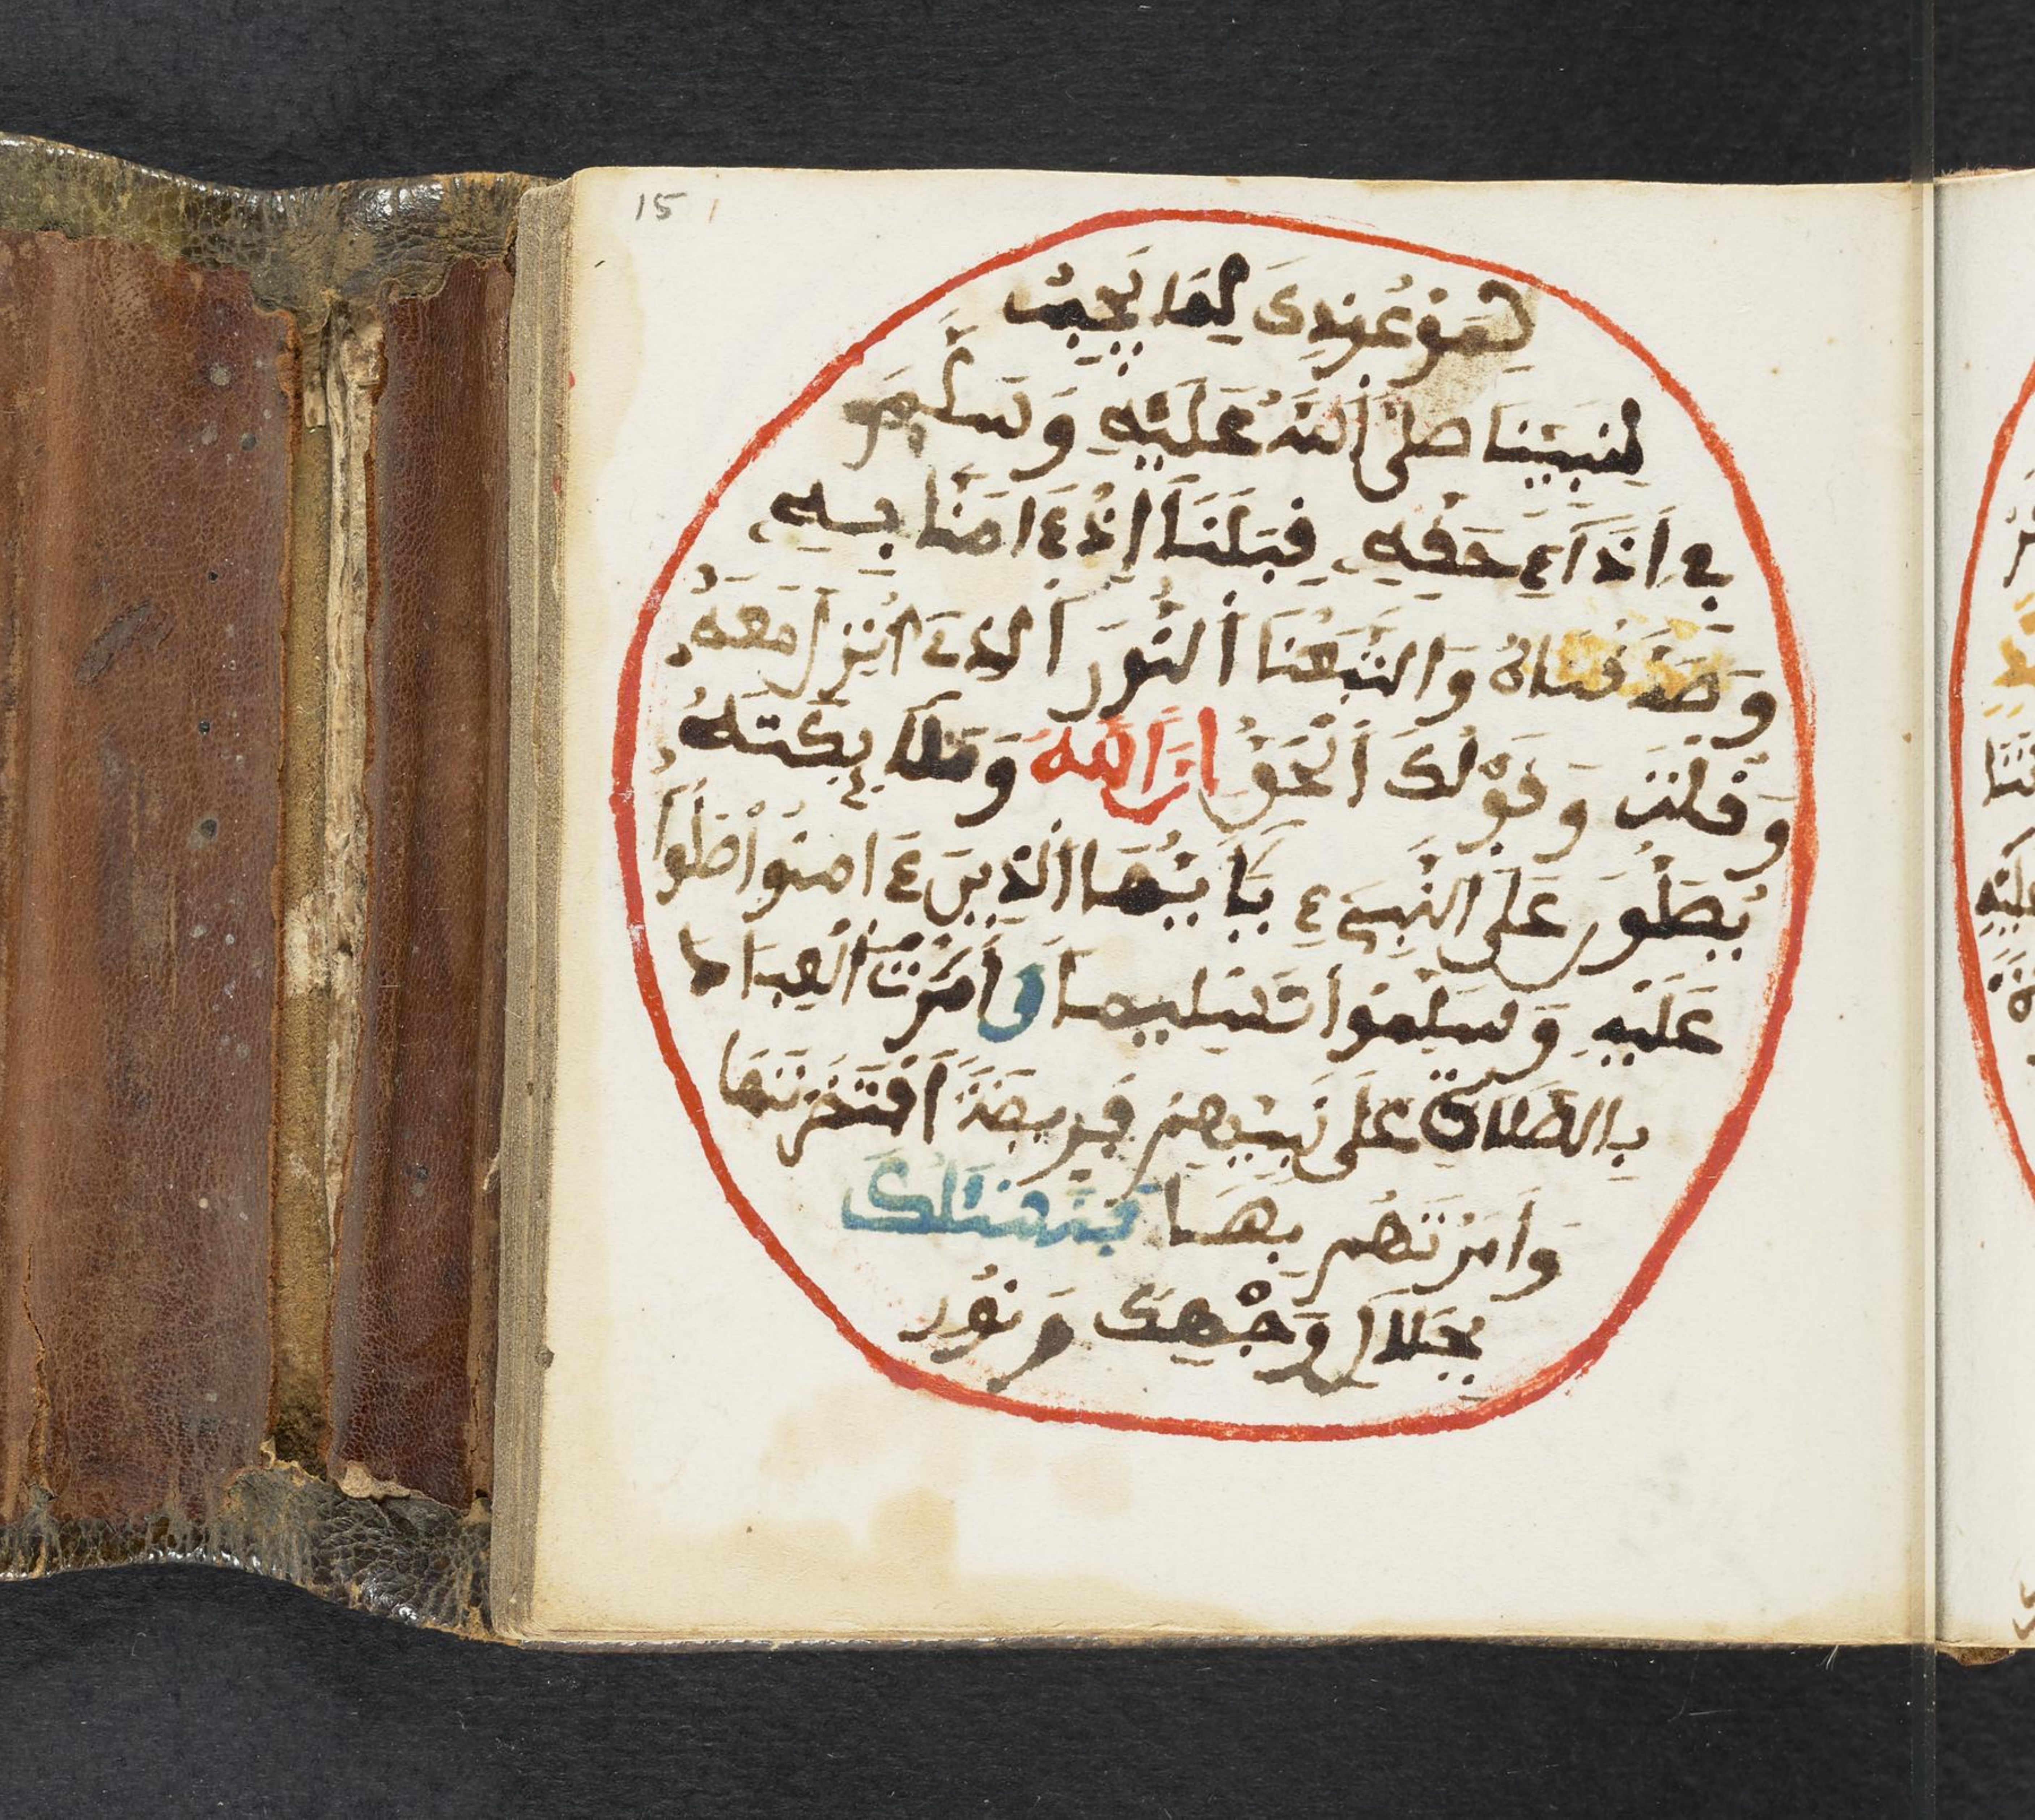 15
هو عندك لما يجب
لنبينا صلى الله عليه وسلم
في اداء حقه قبلنا اذ ءامنا به
وصدقناه واتبعنا النور الذي انزل معه
وقلت وقولك الحق ان الله وملايكته
يصلون على النبيء يايها الذين ءامنوا صلوا
عليه وسلموا تسليما وامرت العباد
بالصلاة على نبيهم فريضة افترضتها
وامرتهم بها فنسئلك
بجلال وجهك ونور